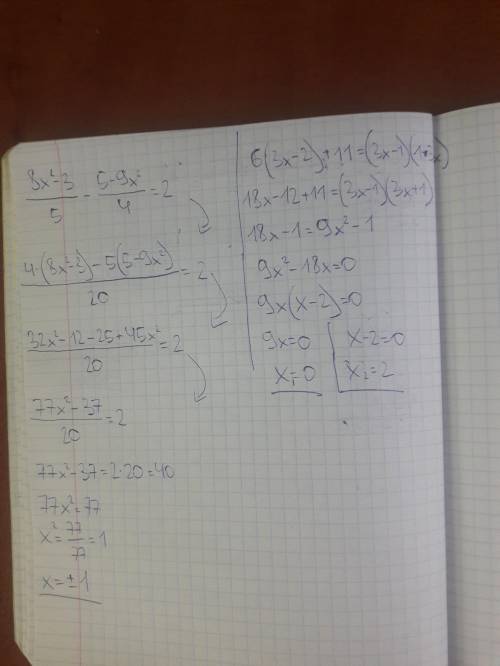 (8x²-3)/5 - (5-9x²)/4 = 2
(4·(8x²-3)-5(5-9x²))/20 = 2
(32x²-12-25+45x²)/20 = 2
(77x²-37)/20 = 2
77x²-37=2·20=40
77x²=77
x²=77/77=1
x=±1
6(3x-2)+11=(3x-1)(1+3x)
18x-12+11=(3x-1)(3x+1)
18x-1=9x²-1
9x²-18x=0
9x(x-2)=0
9x=0 | x-2=0
x₁=0 | x₂=2